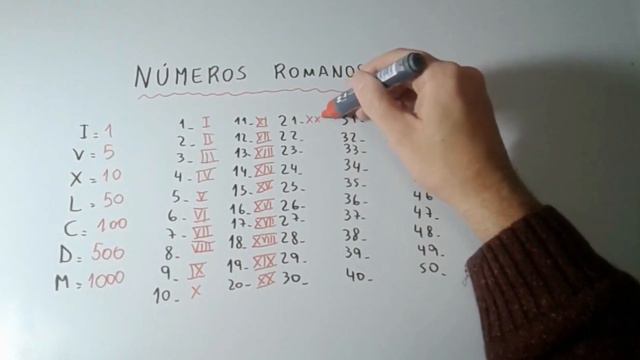 NÚMEROS ROMANOS
I = 1
V = 5
X = 10
L = 50
C = 100
D = 500
M = 1000
1_ I
2_ II
3_ III
4_ IV
5_ V
6_ VI
7_ VII
8_ VIII
9_ IX
10_ X
11_ XI
12_ XII
13_ XIII
14_ XIV
15_ XV
16_ XVI
17_ XVII
18_ XVIII
19_ XIX
20_ XX
21_ XX
22_
23_
24_
25_
26_
27_
28_
29_
30_
31_
32_
33_
34_
35_
36_
37_
38_
39_
40_
46_
47_
48_
49_
50_